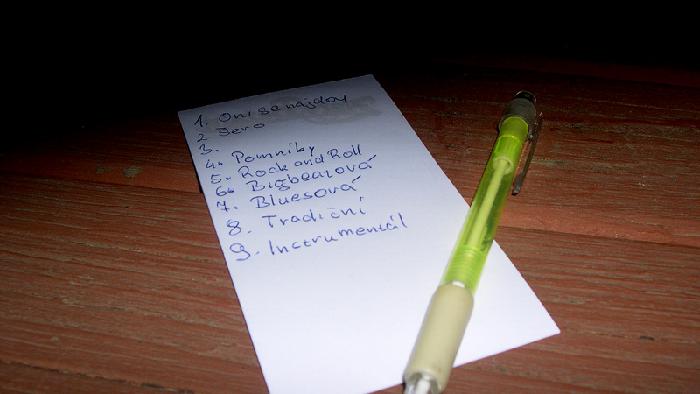 1. Oni se najdou
2 Sero
3.
4. Pomníky
5. Rock and Roll
6. Bigbeatová
7. Bluesová
8. Tradiční
9. Instrumentál